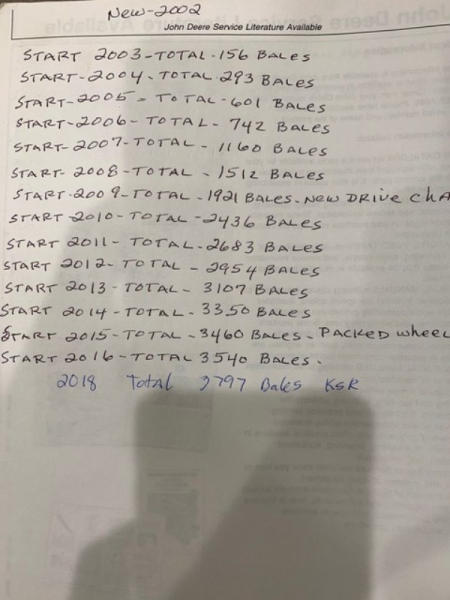 New-2002
John Deere Service Literature Available
START 2003-TOTAL-156 BALES
START-2004-TOTAL 293 BALES
START-2005-TOTAL-601 BALES
START-2006-TOTAL-742 BALES
START-2007-TOTAL-1160 BALES
START-2008-TOTAL-1512 BALES
START-2009-TOTAL-1921 BALES-NEW DRIVE CHA
START 2010-TOTAL-2436 BALES
START 2011-TOTAL-2683 BALES
START 2012-TOTAL-2954 BALES
START 2013-TOTAL-3107 BALES
START 2014-TOTAL-3350 BALES
START 2015-TOTAL-3460 BALES-PACKED wheel
START 2016-TOTAL 3540 BALES.
2018 Total 3797 Bales KSR